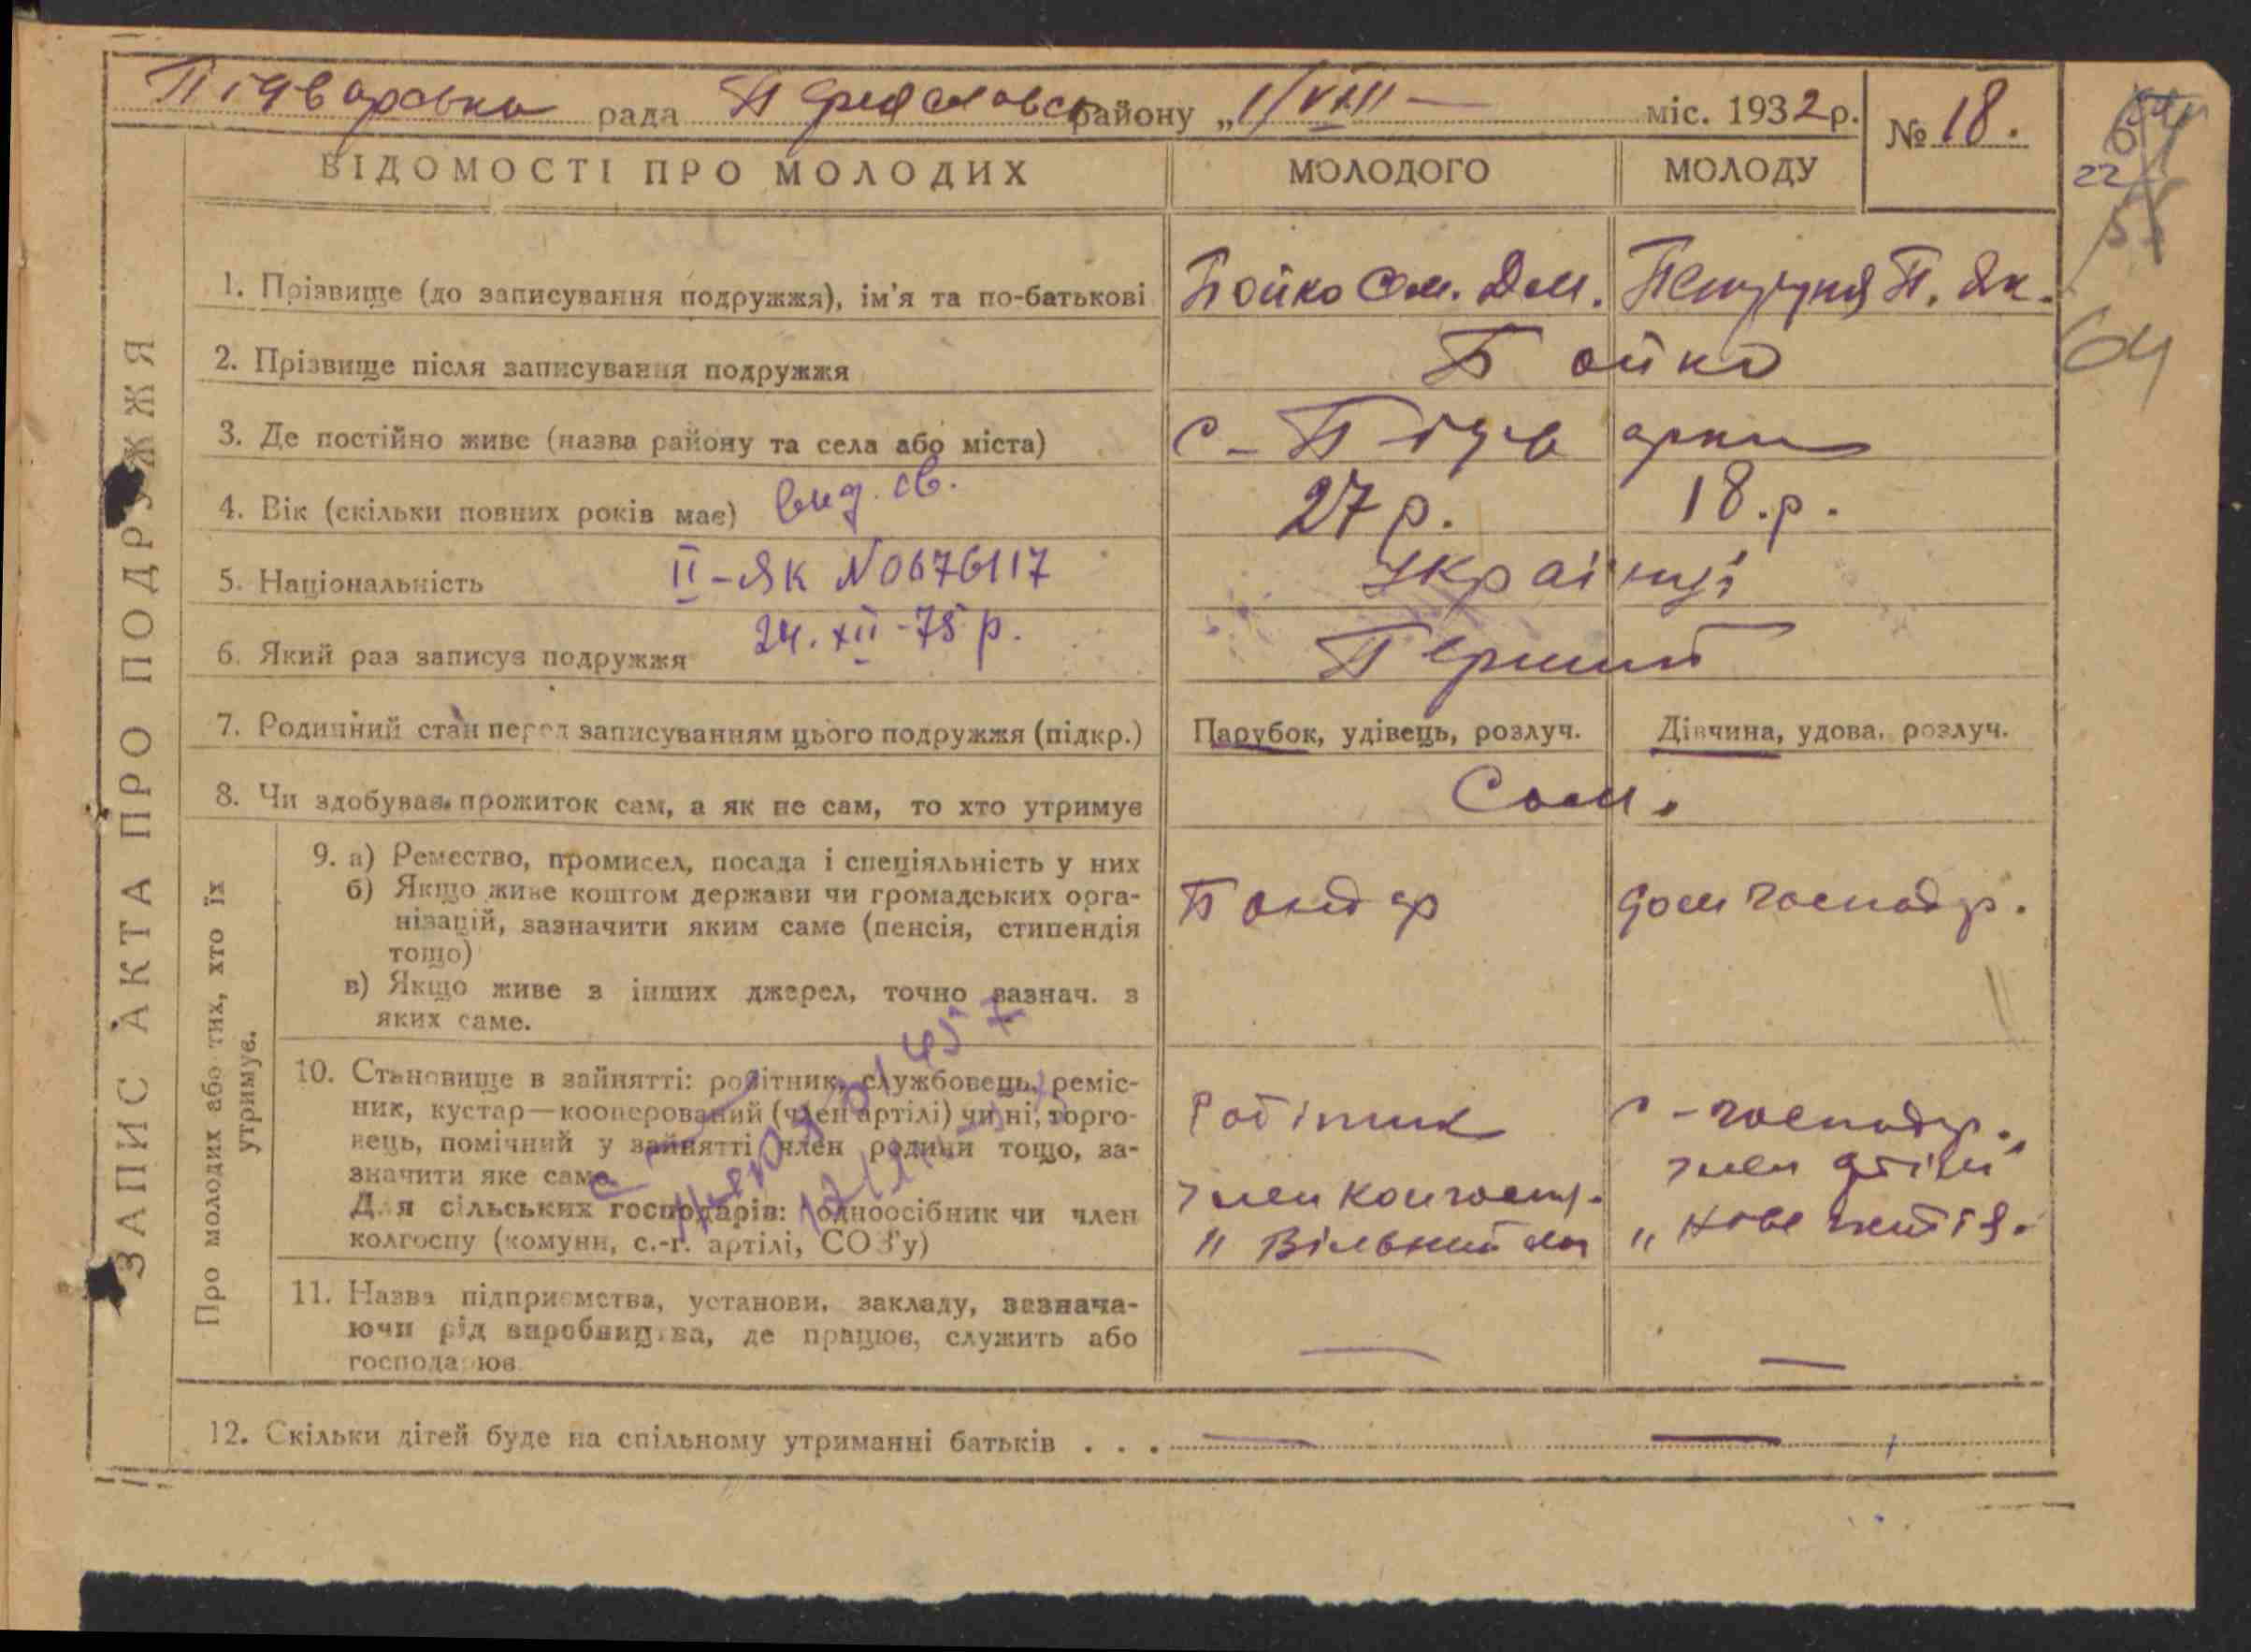 Підварська рада Переясловськ району „1/VIII — міс. 1932 р. № 18.
22
ВІДОМОСТІ ПРО МОЛОДИХ МОЛОДОГО МОЛОДУ
ЗАПИС АКТА ПРО ПОДРУЖЖЯ
1. Прізвище (до записування подружжя), ім'я та по-батькові Бойко Сем. Дем. П. Як.
64
2. Прізвище після записування подружжя Бойко
3. Де постійно живе (назва району та села або міста) с-Підварки
4. Вік (скільки повних років має) вид. св. 27 р. 18. р.
5. Національність II-ЯК №0676117 Українці
6. Який раз записує подружжя 24. XII-75 р. Перший
7. Родинний стан перед записуванням цього подружжя (підкр.) Парубок, удівець, розлуч. Дівчина, удова, розлуч.
8. Чи здобуває прожиток сам, а як не сам, то хто утримує Сам.
Про молодих або тих, хто їх
утримує.
9. а) Ремество, промисел, посада і спеціяльність у них
б) Якщо живе коштом держави чи громадських орга-
нізацій, зазначити яким саме (пенсія, стипендія
тощо)
в) Якщо живе з інших джерел, точно зазнач. з
яких саме.
Бондар
дом господр.
10. Становище в зайнятті: робітник, службовець, реміс-
ник, кустар—кооперований (член артілі) чи ні, торго-
вець, помічний у зайнятті член родини тощо, за-
значити яке саме.
Для сільських господарів: одноосібник чи член
колгоспу (комуни, с.-г. артілі, СОЗ'у)
Робітник
член колгосп.
„ Вільний
с-господр.
член артілі
„ Нове життя.
11. Назва підприємства, установи, закладу, зазнача-
ючи рід виробництва, де працює, служить або
господарює — —
12. Скільки дітей буде на спільному утриманні батьків . . . — —